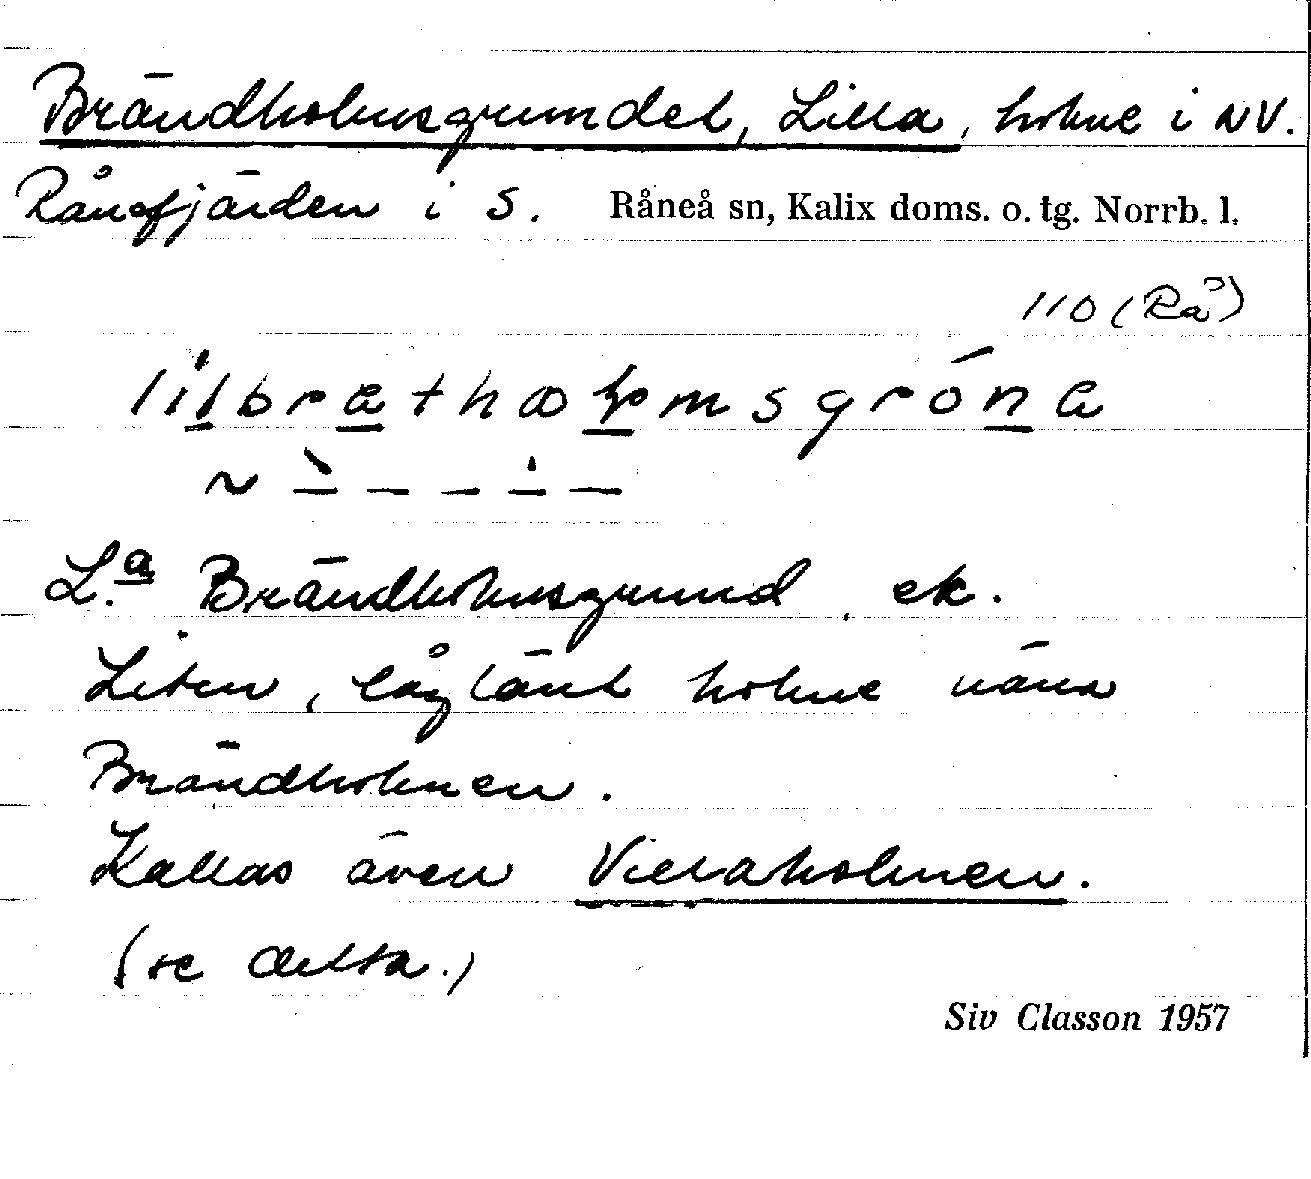 Brändholmsgrundet, Lilla, holme i NV.
Rånefjärden i S. Råneå sn, Kalix doms. o. tg. Norrb. l.
110 (Rå)
L:a Brändholmsgrund ek.
Liten, låglänt holme nära
Brändholmen.
Kallas även Villaholmen.
(se detta.)
Siv Classon 1957